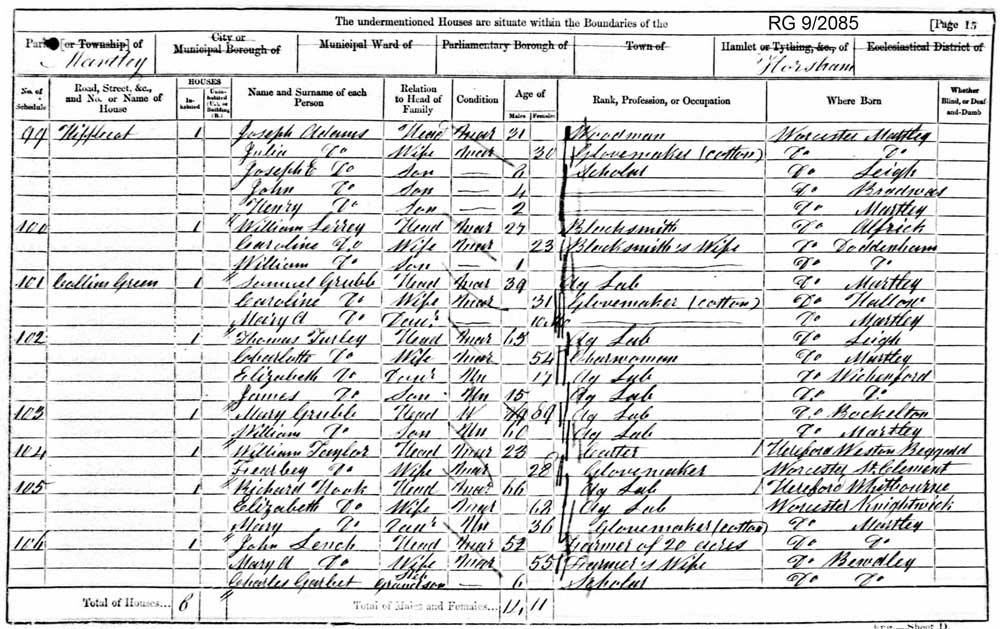 The undermentioned Houses are situate within the Boundaries of the RG 9/2085 [Page 15
Parish [or Township] of City or Municipal Borough of Municipal Ward of Parliamentary Borough of Town of Hamlet or Tything, &c., of Ecclesiastical District of
Martley Horsham
No. of Schedule Road, Street, &c., and No. or Name of House HOUSES Inhabited Uninhabited (U.), or Building (B.) Name and Surname of each Person Relation to Head of Family Condition Age of Males Females Rank, Profession, or Occupation Where Born Whether Blind, or Deaf-and-Dumb
99 1 Joseph Adams Head Mar 31 Woodman Worcester Martley
Julia Do Wife Mar 30 Glovemaker (cotton) Do Do
Joseph E Do Son — 6 Scholar Do Leigh
John Do Son — 4 Do Bradwas
Henry Do Son — 2 Do Martley
100 1 William Head Mar 27 Blacksmith Do Alfrick
Caroline Do Wife Mar 23 Blacksmith's Wife Do Doddenham
William Do Son — 1 Do Do
101 Collins Green 1 Samuel Grubb Head Mar 39 Ag Lab Do Martley
Caroline Do Wife Mar 31 Glovemaker (cotton) Do Hallow
Mary A Do Daur — Do Martley
102 1 Thomas Turley Head Mar 65 Ag Lab Do Leigh
Charlotte Do Wife Mar 54 Charwoman Do Martley
Elizabeth Do Daur Un 17 Ag Lab Do Wichenford
James Do Son Un 15 Ag Lab Do Do
103 1 Mary Grubb Head W 69 Ag Lab Do Cockelton
William Do Son Un Ag Lab Do Martley
104 1 William Taylor Head Mar 23 / Hereford Weston Beggard
Do Wife Mar 28 Glovemaker Worcester St Clement
105 1 Richard Head Mar 66 Ag Lab / Hereford Whitbourne
Elizabeth Do Wife Mar 62 Ag Lab Worcester Knightwick
Mary Do Daur Un 36 Glovemaker (cotton) Do Martley
106 1 John Lench Head Mar 52 Farmer of 20 acres Do Do
Mary A Do Wife Mar 55 Farmer's Wife Do Bewdley
Charles Garbet Step Grandson — 6 Scholar Do Do
Total of Houses... 8 Total of Males and Females... 14 11
Eng.—Sheet D.